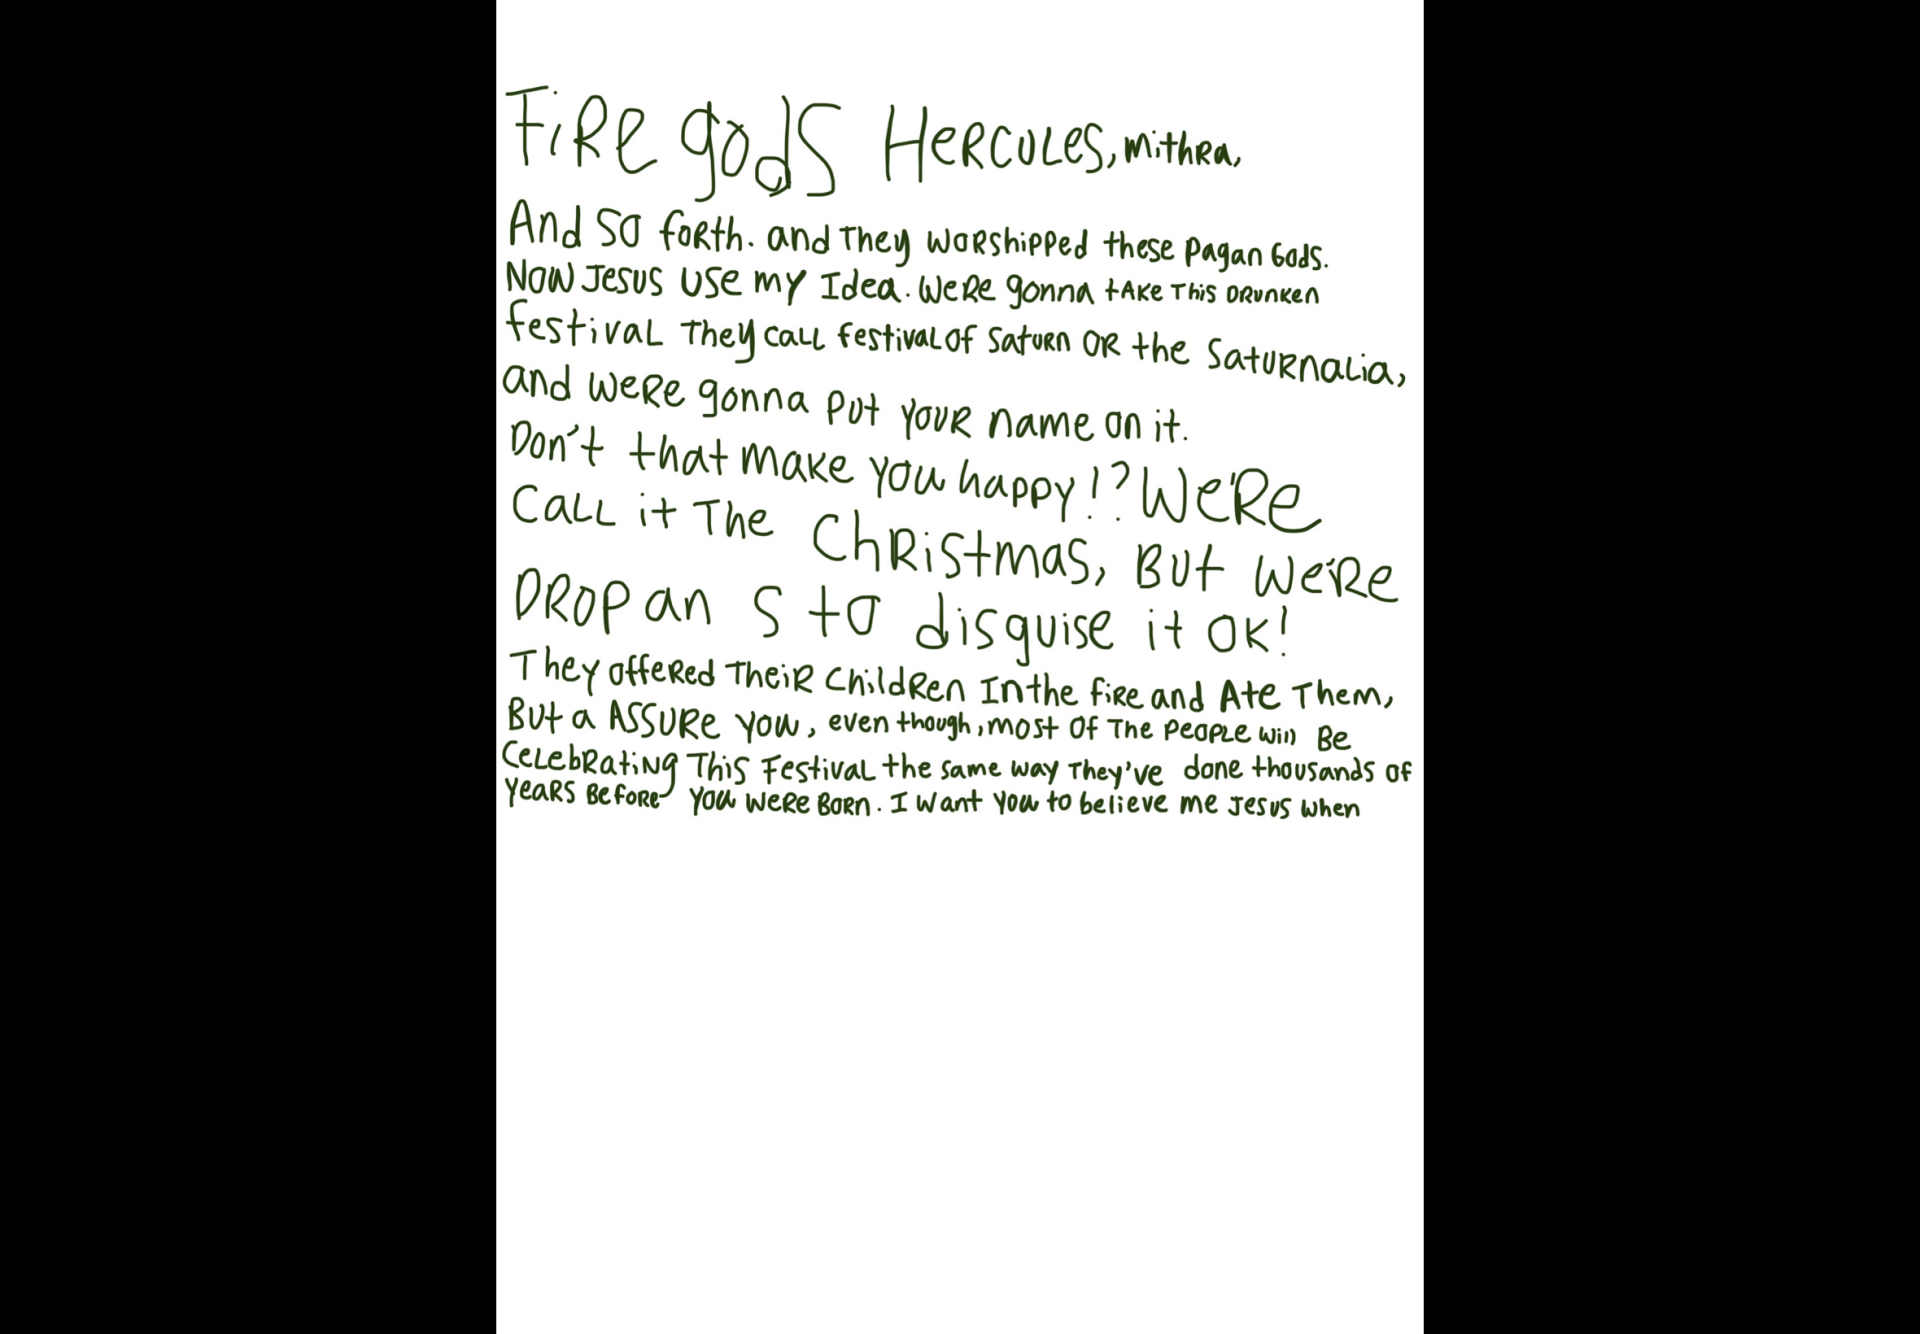 Fire gods Hercules, Mithra,
And so forth. and They worshipped these Pagan Gods.
Now Jesus use my Idea. We're gonna take This Drunken
festival They call festival of Saturn OR the Saturnalia,
and were gonna put your name on it.
Don't that make you happy!? We're
Call it The Christmas, But we're
Drop an S to disguise it ok!
They offered Their Children In the fire and Ate Them,
But a Assure you, even though, most of The People will Be
Celebrating This Festival the same way They've done thousands of
years Before you were Born. I want you to believe me Jesus when